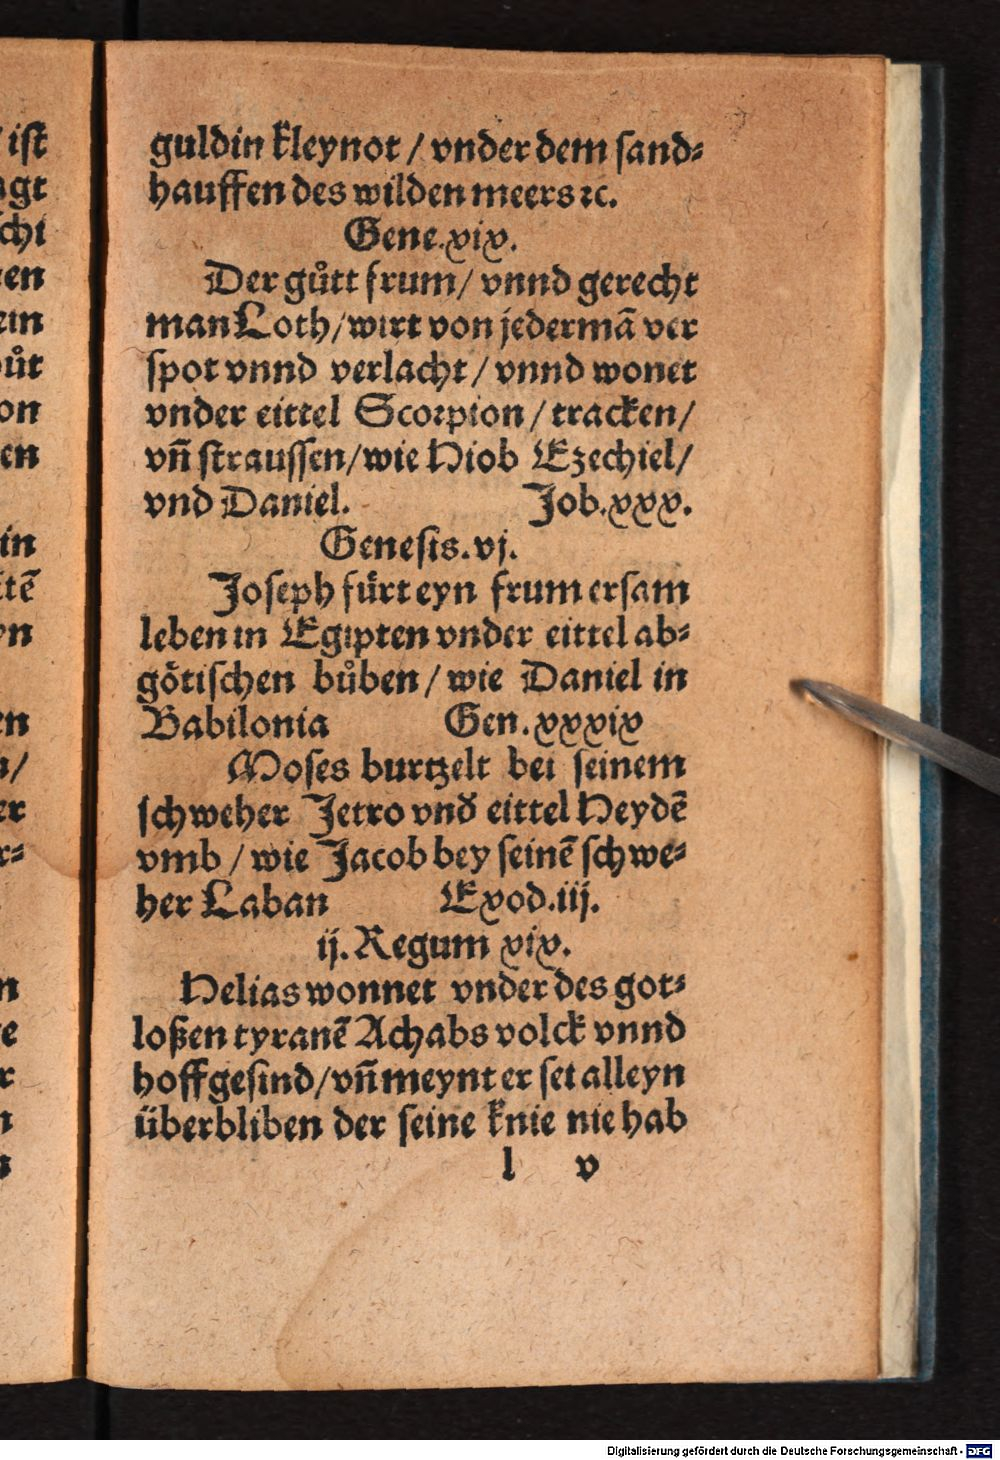 guldin kleynot / vnder dem sand⸗
hauffen des wilden meers ꝛc.
Gene.xix.
Der gůtt frum/ vnnd gerecht
man Loth/wirt von jedermã ver
spot vnnd verlacht / vnnd wonet
vnder eittel Scorpion / tracken/
vñ straussen/wie Hiob Ezechiel/
vnd Daniel. Job.xxx.
Genesis.vj.
Joseph fürt eyn frum ersam
leben in Egipten vnder eittel ab⸗
götischen bůben / wie Daniel in
Babilonia Gen.xxxix
Moses burtzelt bei seinem
schweher Jetro vnd eittel Heydẽ
vmb / wie Jacob bey seinẽ schwe⸗
her Laban Exod.iij.
ij. Regum xix.
Helias wonnet vnder des got⸗
loßen tyranẽ Achabs volck vnnd
hoffgesind/vñ meynt er sei alleyn
überbliben der seine knie nie hab
l v
Digitalisierung gefördert durch die Deutsche Forschungsgemeinschaft - DFG